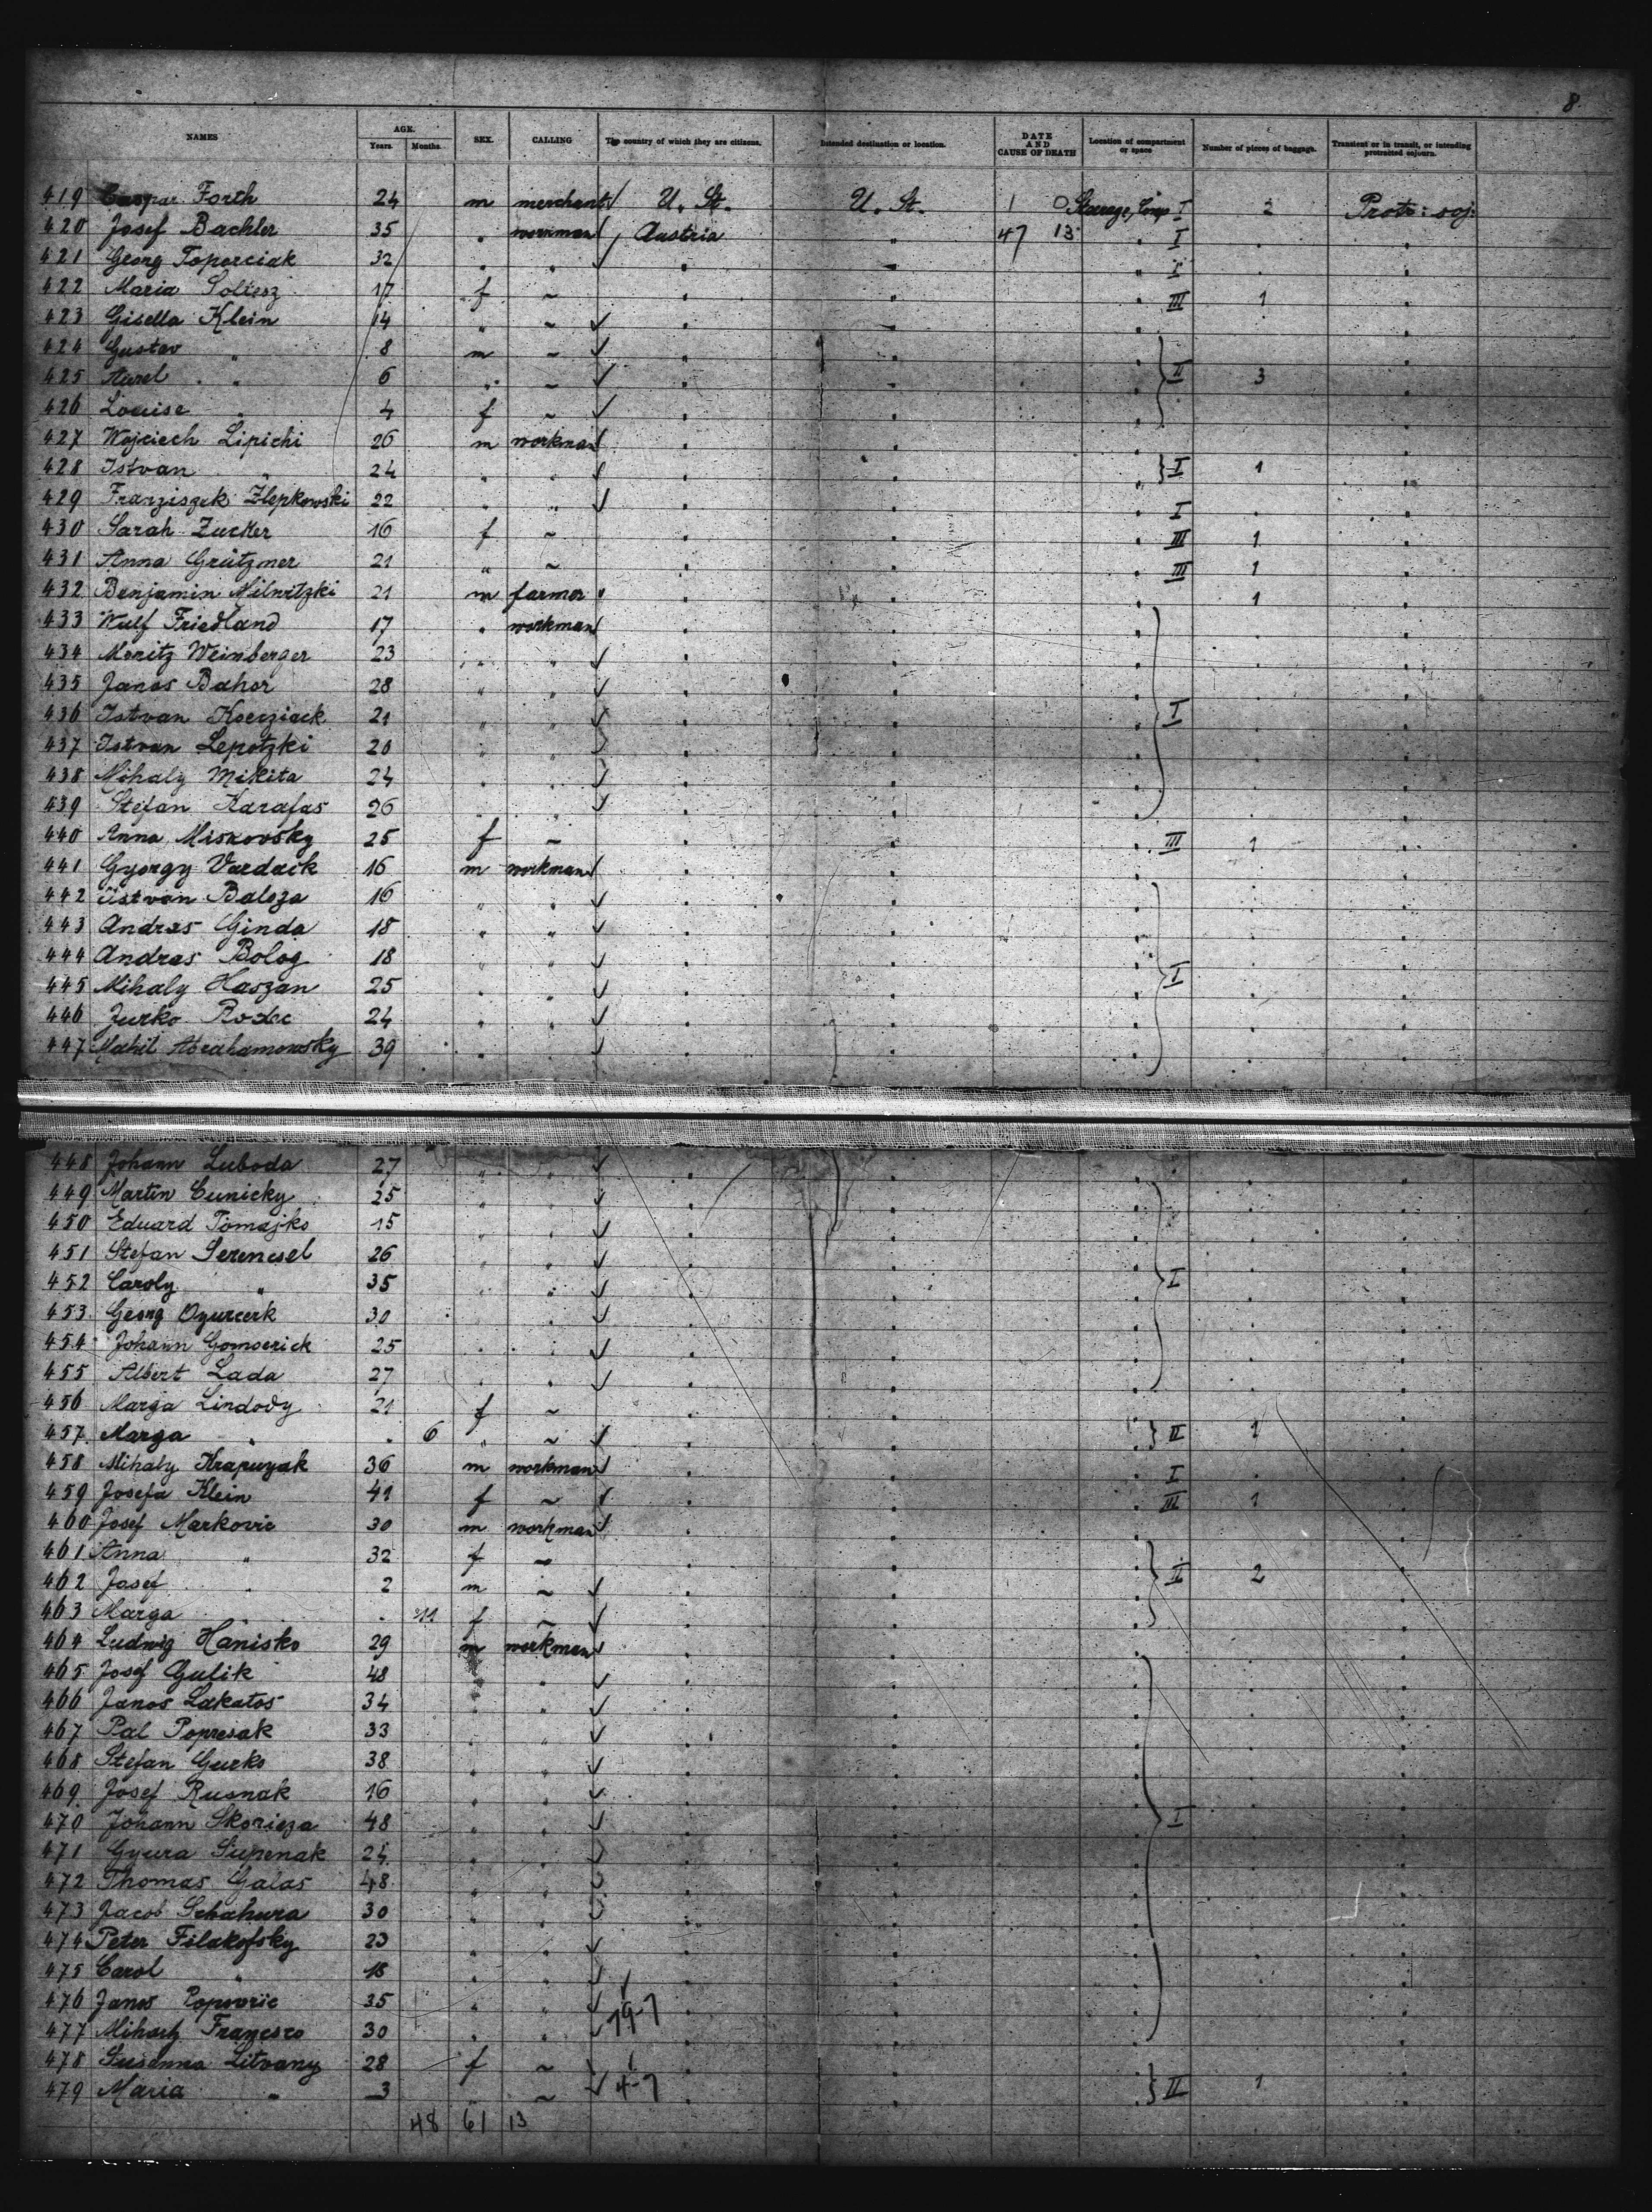 8.
NAMES AGE. Years. Months. SEX. CALLING The country of which they are citizens. Intended destination or location. DATE AND CAUSE OF DEATH Location of compartment or space Number of pieces of baggage. Transient or in transit, or intending protracted sojourn.
419 Caspar Forth 24 m merchant U. St. U. St. 1 0 Steerage, Comp I 2 Protr: soj:
420 Josef Bachler 35 " workman Austria " 47 13 " I " "
421 Georg Toporciak 32 " " " " " I " "
422 Maria Soltesz 17 f ~ " " " III 1 "
423 Gisella Klein 14 " ~ " " " "
424 Gustav " 8 m ~ " " " "
425 Aurel " 6 " ~ " " " II 3 "
426 Louise " 4 f ~ " " " "
427 Wojciech Lipichi 26 m workman " " " "
428 Istvan " 24 " " " " " I 1 "
429 Franziszek Zlepkowski 22 " " " " " I " "
430 Sarah Zucker 16 f ~ " " " III 1 "
431 Anna Grützmer 21 " ~ " " " III 1 "
432 Benjamin Milnitzki 21 m farmer " " " 1 "
433 Wulf Friedland 17 " workman " " " " "
434 Moritz Weinberger 23 " " " " " " "
435 Janos Bahor 28 " " " " " " "
436 Istvan 21 " " " " " I " "
437 Istvan Lepotzki 20 " " " " " " "
438 Mihaly Mikita 24 " " " " " " "
439 Stefan Karafas 26 " " " " " " "
440 Anna Miskovsky 25 f ~ " " " III 1 "
441 Gyorgy Vardack 16 m workman " " " " "
442 Istvan Baloza 16 " " " " " " "
443 Andras Ginda 18 " " " " " " "
444 Andras Bolog 18 " " " " " I " "
445 Mihaly Haszan 25 " " " " " " "
446 Jurko 24 " " " " " " "
447 Abrahamowsky 39 " " " " " " "
448 Johann Luboda 27 " " " " " " "
449 Martin Cunicky 25 " " " " " " "
450 Eduard Tomajko 15 " " " " " " "
451 Stefan Serencsel 26 " " " " " " "
452 Caroly " 35 " " " " " I " "
453 Georg 30 " " " " " " "
454 Johann Gomserick 25 " " " " " " "
455 Albert Lada 27 " " " " " " "
456 Marga Lindody 21 f ~ " " " "
457 Marga " " 6 " ~ " " " II 1 "
458 Mihaly 36 m workman " " " I " "
459 Josefa Klein 41 f ~ " " " III 1 "
460 Josef Markovic 30 m workman " " " "
461 Anna " 32 f ~ " " " "
462 Josef " 2 m ~ " " " II 2 "
463 Marga " " 11 f ~ " " " "
464 Ludwig Hanisko 29 m workman " " " " "
465 Josef Gulik 48 " " " " " " "
466 Janos Lakatos 34 " " " " " " "
467 Pal Popresak 33 " " " " " " "
468 Stefan Gurko 38 " " " " " " "
469 Josef Rusnak 16 " " " " " " "
470 Johann Skorieza 48 " " " " " I " "
471 Gyura Supenak 24 " " " " " " "
472 Thomas Galas 48 " " " " " " "
473 Jacob Schahura 30 " " " " " " "
474 Peter Filakofsky 23 " " " " " " "
475 Carol " 18 " " " " " "
476 Janos Popovric 35 " " 19-7 " " " "
477 Francsco 30 " " " " " "
478 Susanna Litvany 28 f ~ " " "
479 Maria " 3 ~ 4-7 " " II 1 "
48 61 13